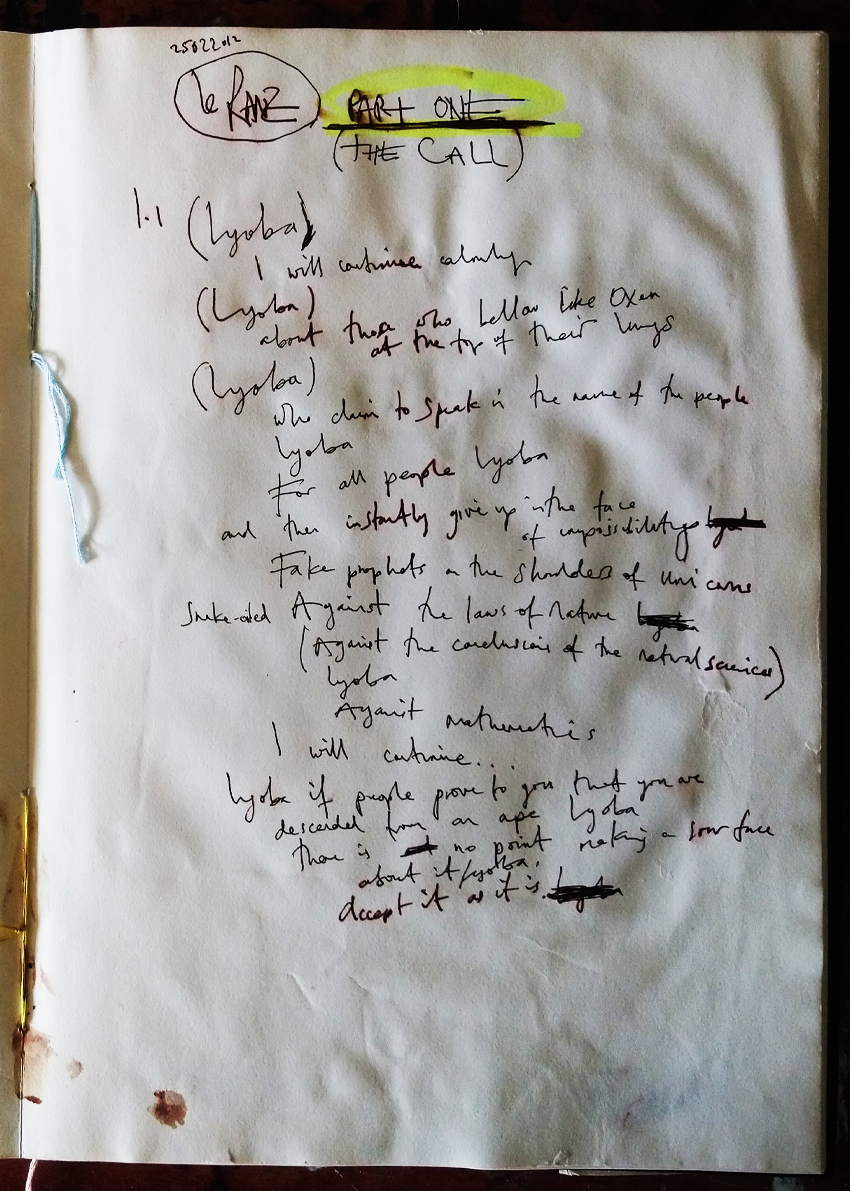 25022012
le RANZ PART ONE
(THE CALL)
1.1 (Lyoba)
I will continue calmly
(Lyoba)
about those who bellow like Oxen
at the top of their lungs
(Lyoba)
who claim to speak in the name of the people
Lyoba
For all people Lyoba
and then instantly give up in the face
of impossibility
Fake prophets on the shoulders of unicorns
Snake-oiled Against the laws of Nature
(Against the conclusions of the natural sciences)
Lyoba
Against mathematics
I will continue...
Lyoba if people prove to you that you are
descended from an ape Lyoba
there is no point making a sour face
about it/Lyoba,
Accept it as it is.